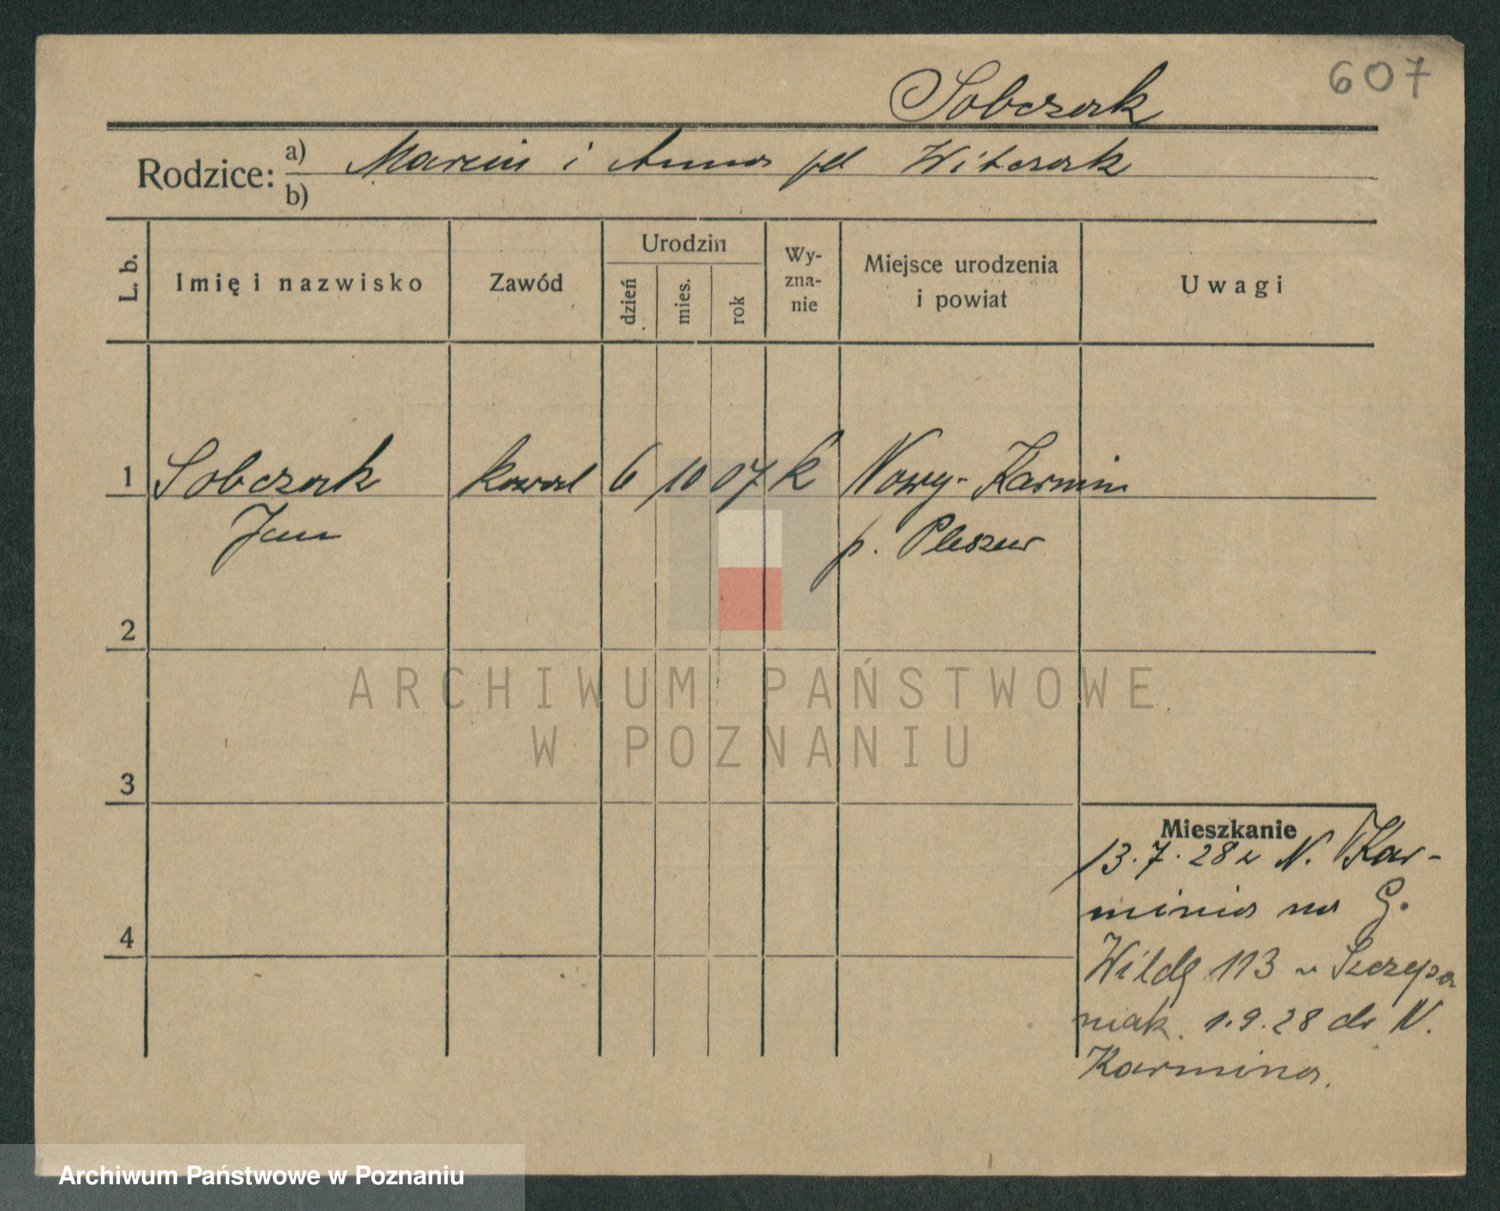 607
Sobczak
Rodzice: a) Marcin i Anna Witczak
b)
L. b. Imię i nazwisko Zawód Urodzin dzień mies. rok Wy-zna-nie Miejsce urodzenia i powiat Uwagi
1 Sobczak kowal 6 10 07 k Nowy-Karmin
Jan p. Pleszew
2
ARCHIWUM PAŃSTWOWE
W POZNANIU
3
Mieszkanie
13.7.28 z N. Kar-
4
mina na G.
Wildę 113 Szczepa
niak. 1.9.28 do N.
Karmina.
Archiwum Państwowe w Poznaniu